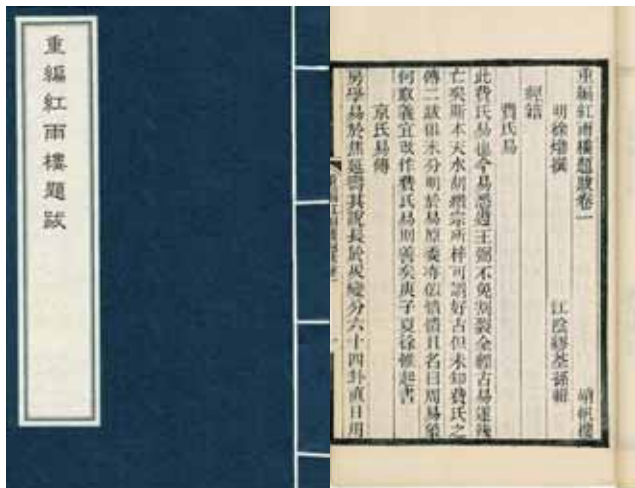 重編紅雨樓題跋
重編紅雨樓題跋卷一 峭帆樓
明徐𤊹撰 江陰繆荃孫輯
經籍
費氏易
此費氏易也今易悉遵王弼不免割裂全經古易遂殘
亡矣斯本天水胡纘宗所梓可謂好古但未知費氏之
傳二跋俱未分明於易原委亦似憒憒且名曰周易
何取義宜改作費氏易則善矣庚子夏徐惟起書
京氏易傳
房學易於焦延壽其說長於災變分六十四卦直日用